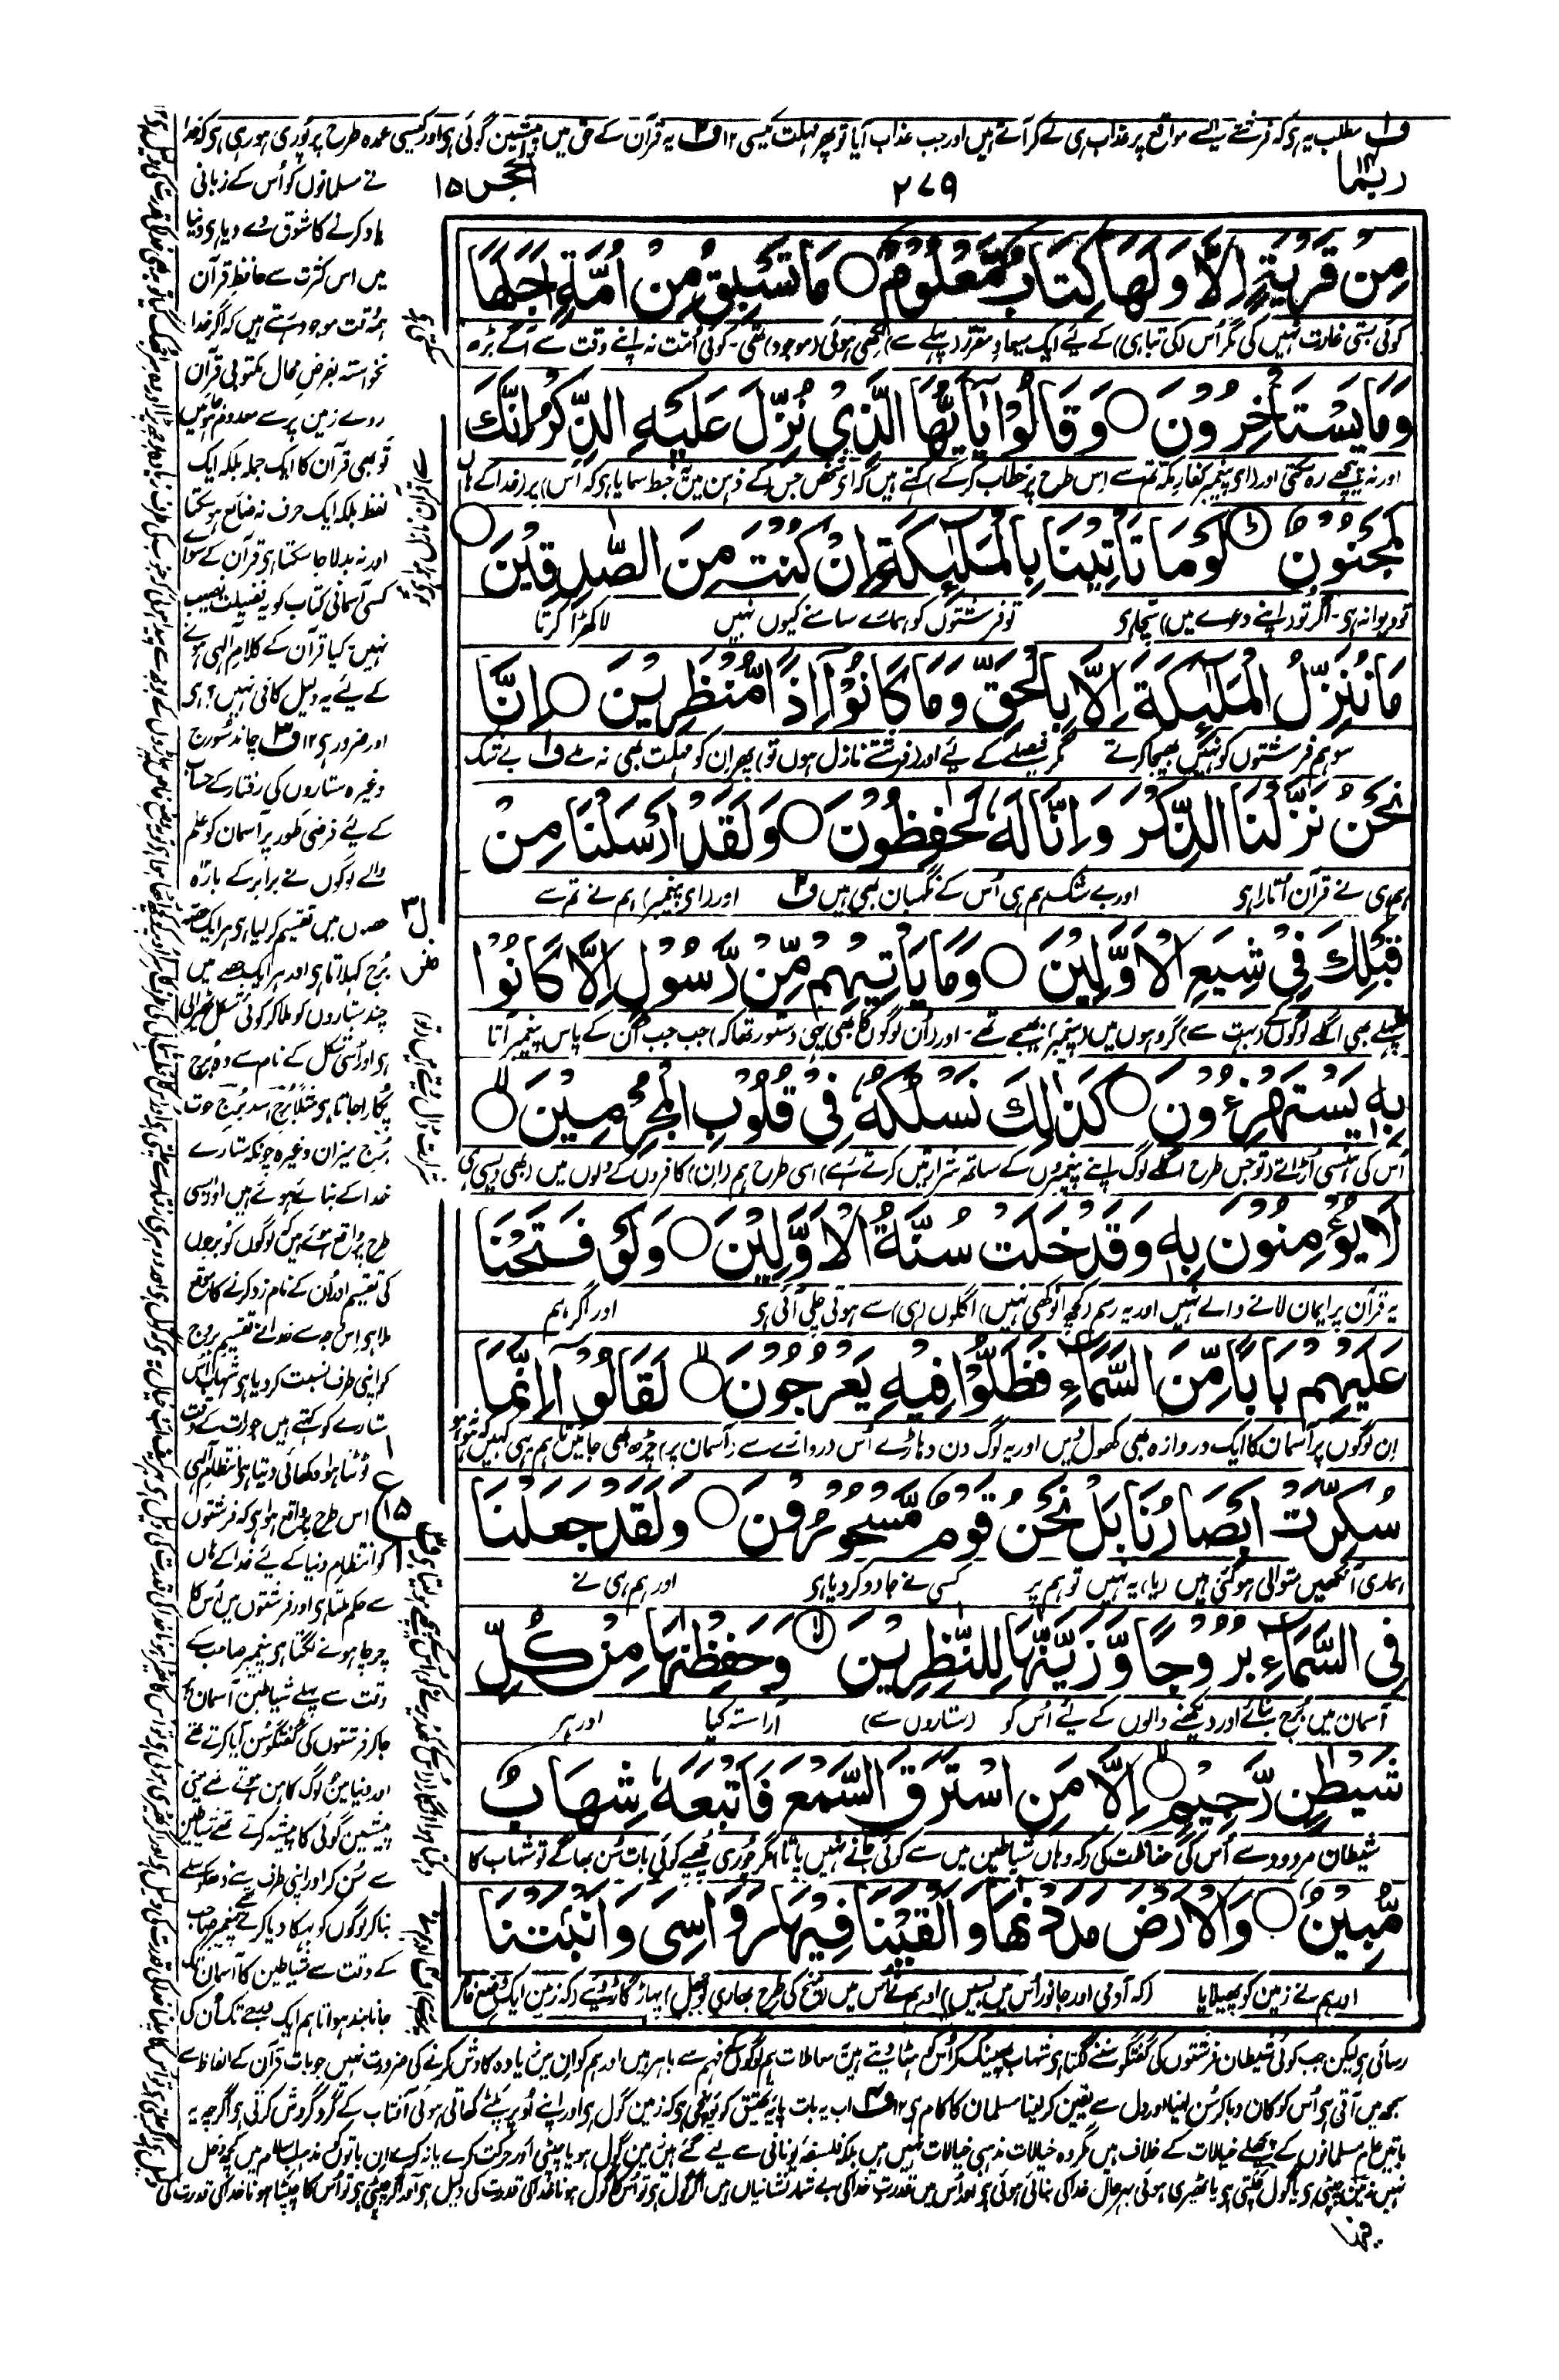 ف۱ مطلب یہ ہی کہ فرشتے ایسے مواقع پر عذاب ہی لے کر آتے ہیں اور جب عذاب آیا تو پھر مہلت کیسی ۱۲ ف۲ یہ قرآن کے حق میں پیشین گوئی ہی اور کیسی عمدہ طرح پر پوری ہو رہی ہی کہ خدا
ربما ۱۴
۲۷۹
الحجر ۱۵
مِنْ قَرْيَةٍ اِلَّا وَلَهَا كِتَابٌ مَّعْلُوْمٌ ○ مَا تَسْبِقُ مِنْ اُمَّةٍ اَجَلَهَا
کوئی بستی غارت نہیں کی مگر اُس (کی تباہی) کے لیے ایک میعاد مقرر (پہلے سے) لکھی ہوئی (موجود) تھی ۔ کوئی اُمت نہ اپنے وقت سے آگے بڑھ
وَمَا يَسْتَاْخِرُوْنَ ○ وَقَالُوْا يٰٓاَيُّهَا الَّذِيْ نُزِّلَ عَلَيْهِ الذِّكْرُ اِنَّكَ
اور نہ پیچھے رہ سکتی اور (ای پیغمبر کفار مکہ تم سے اِس طرح پر خطاب کرکے) کہتے ہیں کہ ای شخص جس (کے ذہن میں یہ خبط سمایا ہی کہ اُس) پر (خدا کے ہاں
لَمَجْنُوْنٌ ○ لَوْ مَا تَاْتِيْنَا بِالْمَلٰٓئِكَةِ اِنْ كُنْتَ مِنَ الصّٰدِقِيْنَ ○
تو دیوانہ ہی ۔ اگر تو (اپنے دعوے میں) سچا ہی تو فرشتوں کو ہمارے سامنے کیوں نہیں لا کھڑا کرتا
مَا نُنَزِّلُ الْمَلٰٓئِكَةَ اِلَّا بِالْحَقِّ وَمَا كَانُوْٓا اِذًا مُّنْظَرِيْنَ ○ اِنَّا
سو ہم فرشتوں کو نہیں بھیجا کرتے مگر فیصلے کے لیے اور (فرشتے نازل ہوں تو) پھر اِن کو مہلت بھی نہ ملے ف۱ بے شک
نَحْنُ نَزَّلْنَا الذِّكْرَ وَاِنَّا لَهٗ لَحٰفِظُوْنَ ○ وَلَقَدْ اَرْسَلْنَا مِنْ
ہم ہی نے قرآن اُتارا ہی اور بے شک ہم ہی اُس کے نگہبان بھی ہیں ف۲ اور (ای پیغمبر) ہم نے تم سے
قَبْلِكَ فِيْ شِيَعِ الْاَوَّلِيْنَ ○ وَمَا يَاْتِيْهِمْ مِّنْ رَّسُوْلٍ اِلَّا كَانُوْا
پہلے بھی اگلے لوگوں کے (بہت سے) گروہوں میں (پیغمبر) بھیجے تھے ۔ اور (اُن لوگوں کا بھی یہی دستور تھا کہ) جب جب اُن کے پاس پیغمبر آتا
بِهٖ يَسْتَهْزِءُوْنَ ○ كَذٰلِكَ نَسْلُكُهٗ فِيْ قُلُوْبِ الْمُجْرِمِيْنَ ○
اُس کی ہنسی اُڑاتے (تو جس طرح اگلے لوگ اپنے پیغمبروں کے ساتھ شرارتیں کرتے رہے) اسی طرح ہم (اِن) کافروں کے دلوں میں (بھی ویسی ہی
لَا يُؤْمِنُوْنَ بِهٖ وَقَدْ خَلَتْ سُنَّةُ الْاَوَّلِيْنَ ○ وَلَوْ فَتَحْنَا
یہ قرآن پر ایمان لانے والے نہیں اور یہ رسم (کچھ انوکھی نہیں) اگلوں (ہی) سے ہوتی چلی آئی ہی اور اگر ہم
عَلَيْهِمْ بَابًا مِّنَ السَّمَآءِ فَظَلُّوْا فِيْهِ يَعْرُجُوْنَ ○ لَقَالُوْٓا اِنَّمَا
اِن لوگوں پر آسمان کا ایک دروازہ بھی کھول دیں اور یہ لوگ دن دہاڑے اُس دروازے سے (آسمان پر) چڑھ بھی جائیں تاہم یہی کہیں کہ نہ ہو
سُكِّرَتْ اَبْصَارُنَا بَلْ نَحْنُ قَوْمٌ مَّسْحُوْرُوْنَ ○ وَلَقَدْ جَعَلْنَا
ہماری آنکھیں متوالی ہو گئی ہیں (یا) یہ نہیں تو ہم پر کسی نے جادو کر دیا ہی اور ہم ہی نے
فِي السَّمَآءِ بُرُوْجًا وَّزَيَّنّٰهَا لِلنّٰظِرِيْنَ ○ وَحَفِظْنٰهَا مِنْ كُلِّ
آسمان میں بُرج بنائے اور دیکھنے والوں کے لیے اُس کو (ستاروں سے) آراستہ کیا اور ہر
شَيْطٰنٍ رَّجِيْمٍ ○ اِلَّا مَنِ اسْتَرَقَ السَّمْعَ فَاَتْبَعَهٗ شِهَابٌ
شیطان مردود سے اُس کی حفاظت کی (کہ وہاں شیاطین میں سے کوئی جانے نہیں پاتا) مگر چوری چھپے کوئی بات سُن بھاگے تو شہاب کا
مُّبِيْنٌ ○ وَالْاَرْضَ مَدَدْنٰهَا وَاَلْقَيْنَا فِيْهَا رَوَاسِيَ وَاَنْبَتْنَا
اور ہم نے زمین کو پھیلایا (کہ آدمی اور جانور اُس میں بسیں) اور ہم نے اُس میں (میخ کی طرح بھاری بوجھل) پہاڑ گاڑ دیے (کہ زمین ایک وضع خاص
نے مسلمانوں کو اُس کے زبانی
یاد کرنے کا شوق دے دیا ہی دنیا
میں اس کثرت سے حافظ قرآن
ہمہ وقت موجود رہتے ہیں کہ اگر خدا
نخواستہ بفرض محال مکتوبی قرآن
روے زمین پر سے معدوم ہو جائیں
تو بھی قرآن کا ایک جملہ بلکہ ایک
لفظ بلکہ ایک حرف نہ ضائع ہو سکتا
اور نہ بدلا جا سکتا ہی قرآن کے سواے
کسی آسمانی کتاب کو یہ فضیلت نصیب
نہیں ۔ کیا قرآن کے کلام الٰہی ہونے
کے لیے یہ دلیل کافی نہیں ؟ ہی
اور ضرور ہی ۱۲ ف۳ چاند سورج
وغیرہ ستاروں کی رفتار کے حساب
کے لیے فرضی طور پر آسمان کو علم
والے لوگوں نے برابر کے بارہ
حصوں میں تقسیم کر لیا ہی ہر ایک حصہ
بُرج کہلاتا ہی اور ہر ایک حصے میں
چند ستاروں کو ملا کر کوئی شکل ٹھہرا لی
ہی اور اُسی شکل کے نام سے وہ بُرج
پکارا جاتا ہی مثلاً بُرج اسد بُرج حوت
بُرج میزان وغیرہ چونکہ ستارے
خدا کے بنائے ہوئے ہیں اور ایسی
طرح پر واقع ہوئے ہیں کہ لوگوں کو برجوں
کی تقسیم اور اُن کے نام زد کرنے کا موقع
ملا ہی اس وجہ سے خدا نے تقسیم بروج
کو اپنی طرف نسبت کر دیا ہی شہاب اُس
ستارے کو کہتے ہیں جو رات کے وقت
ٹوٹتا ہوا دکھائی دیتا ہی انتظام الٰہی
اس طرح پر واقع ہوا ہی کہ فرشتوں
کو انتظام دنیا کے لیے خدا کے ہاں
سے حکم ملتا ہی اور فرشتوں میں اُس کا
چرچا ہونے لگتا ہی پیغمبر صاحب کے
وقت سے پہلے شیاطین آسمان پر
جا کر فرشتوں کی گفتگو سُن آیا کرتے تھے
اور دنیا میں جو لوگ کاہن ہوتے تھے یعنی
پیشین گوئی کا پیشہ کرتے تھے شیاطین
سے سُن کر اور اپنی طرف سے ڈھکوسلے
بنا کر لوگوں کو بہکا دیا کرتے تھے پیغمبر صاحب
کے وقت سے شیاطین کا آسمان تک
جانا بند ہوا تاہم ایک حصے تک اُن کی
رسائی ہی لیکن جب کوئی شیطان فرشتوں کی گفتگو سننے لگتا ہی شہاب پھینک کر اُس کو ہٹا دیتے ہیں یہ معاملات ہم لوگوں کے فہم سے باہر ہیں اور ہم کو اِن میں زیادہ کاوش کرنے کی ضرورت نہیں جو بات قرآن کے الفاظ سے
سمجھ میں آتی ہی اُس کو کان دبا کر سُن لینا اور دل سے یقین کر لینا مسلمان کا کام ہی ۱۲ ف۴ اب یہ بات پایۂ تحقیق کو پہنچ گئی ہی کہ زمین گول ہی اور اپنے اُوپر پلٹے کھاتی ہوئی آفتاب کے گرد گردش کرتی ہی اگرچہ یہ
باتیں علم مسلمانوں کے پچھلے خیالات کے خلاف ہیں مگر وہ خیالات مذہبی خیالات نہیں ہیں بلکہ فلسفہ یونانی سے لیے گئے ہیں زمین گول ہو یا چپٹی اور حرکت کرے یا نہ کرے اِن باتوں کو مذہب اسلام میں کچھ دخل
نہیں زمین چپٹی ہی یا گول چلتی ہی یا ٹھیری ہوئی بہر حال خدا کی بنائی ہوئی ہی اور اُس میں قدرت خدا کی بے شمار نشانیاں ہیں اگر گول ہی تو اُس کا گول ہونا خدا کی قدرت کی دلیل ہی اور اگر چپٹی ہی تو اُس کا چپٹا ہونا خدا کی قدرت کی